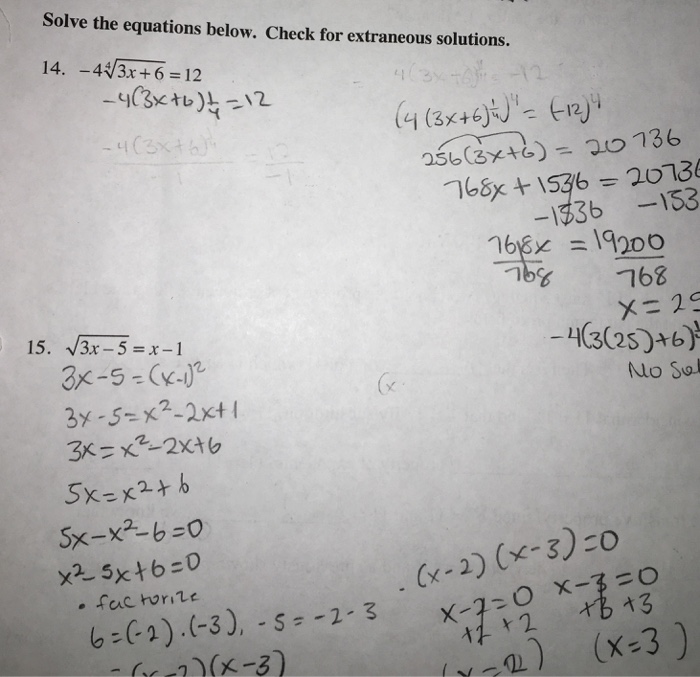 Solve the equations below. Check for extraneous solutions.
14. -4∜(3x+6) = 12
-4(3x+6)^(1/4) = 12
-4(3x+6)
-1 = 12/-1
(4(3x+6)^(1/4))^4 = (-12)^4
256(3x+6) = 20736
768x + 1536 = 20736
-1536 -153
768x = 19200
768 768
x = 25
-4(3(25)+6)
No Sol
15. √(3x-5) = x-1
3x-5 = (x-1)²
(x
3x-5 = x²-2x+1
3x = x²-2x+6
5x = x²+6
5x-x²-6=0
x²-5x+6=0
• factorize
6=(-2).(-3), -5=-2-3
=(x-2)(x-3)
(x-2)(x-3)=0
x-2=0 x-3=0
+2 +2 +3 +3
(x=2) (x=3)